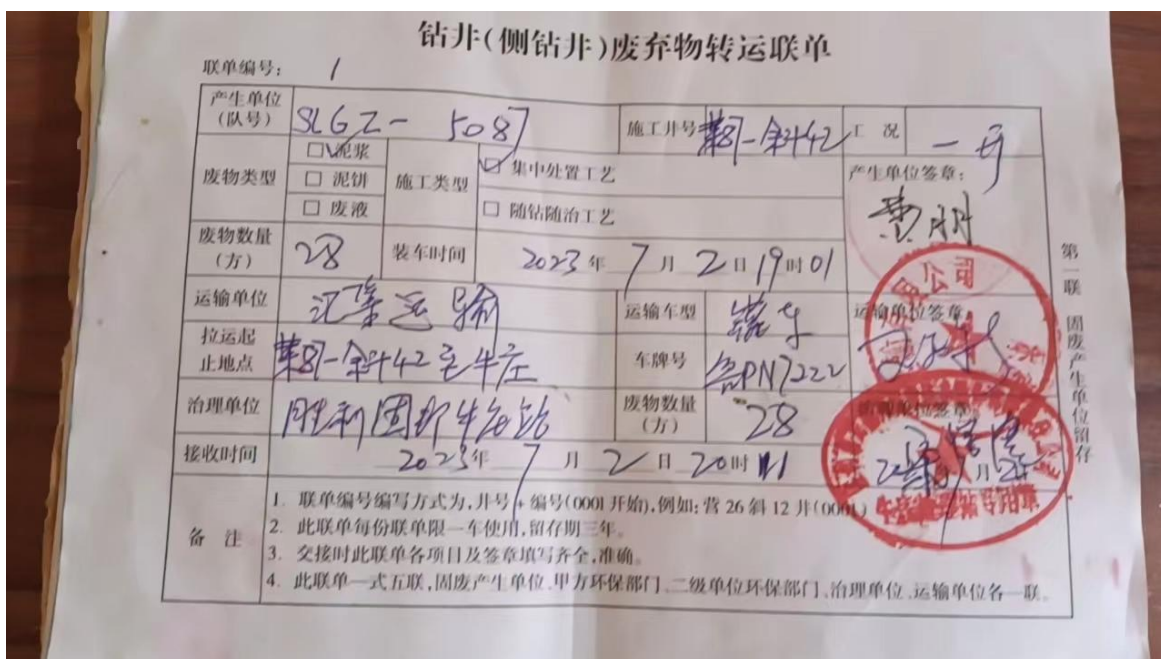 钻井(侧钻井)废弃物转运联单
联单编号： 1
产生单位(队号) SLGZ- 5087 施工井号 工况 一开
废物类型 □泥浆 □ 泥饼 □ 废液 施工类型 □ 集中处置工艺 □ 随钻随治工艺 产生单位签章：
废物数量(方) 28 装车时间 2023年 7月2日19时01
运输单位 汇集运输 运输车型 罐车 运输单位签章：
拉运起止地点 至牛庄 车牌号 鲁PN7222
治理单位 胜利固邦牛庄站 废物数量(方) 28
接收时间 2023年 7月2日20时11
备注
1. 联单编号编写方式为,井号+编号(0001开始),例如:营26斜12井(0001)
2. 此联单每份联单限一车使用,留存期三年。
3. 交接时此联单各项目及签章填写齐全,准确。
4. 此联单一式五联,固废产生单位、甲方环保部门、二级单位环保部门、治理单位、运输单位各一联。
第一联 固废产生单位留存